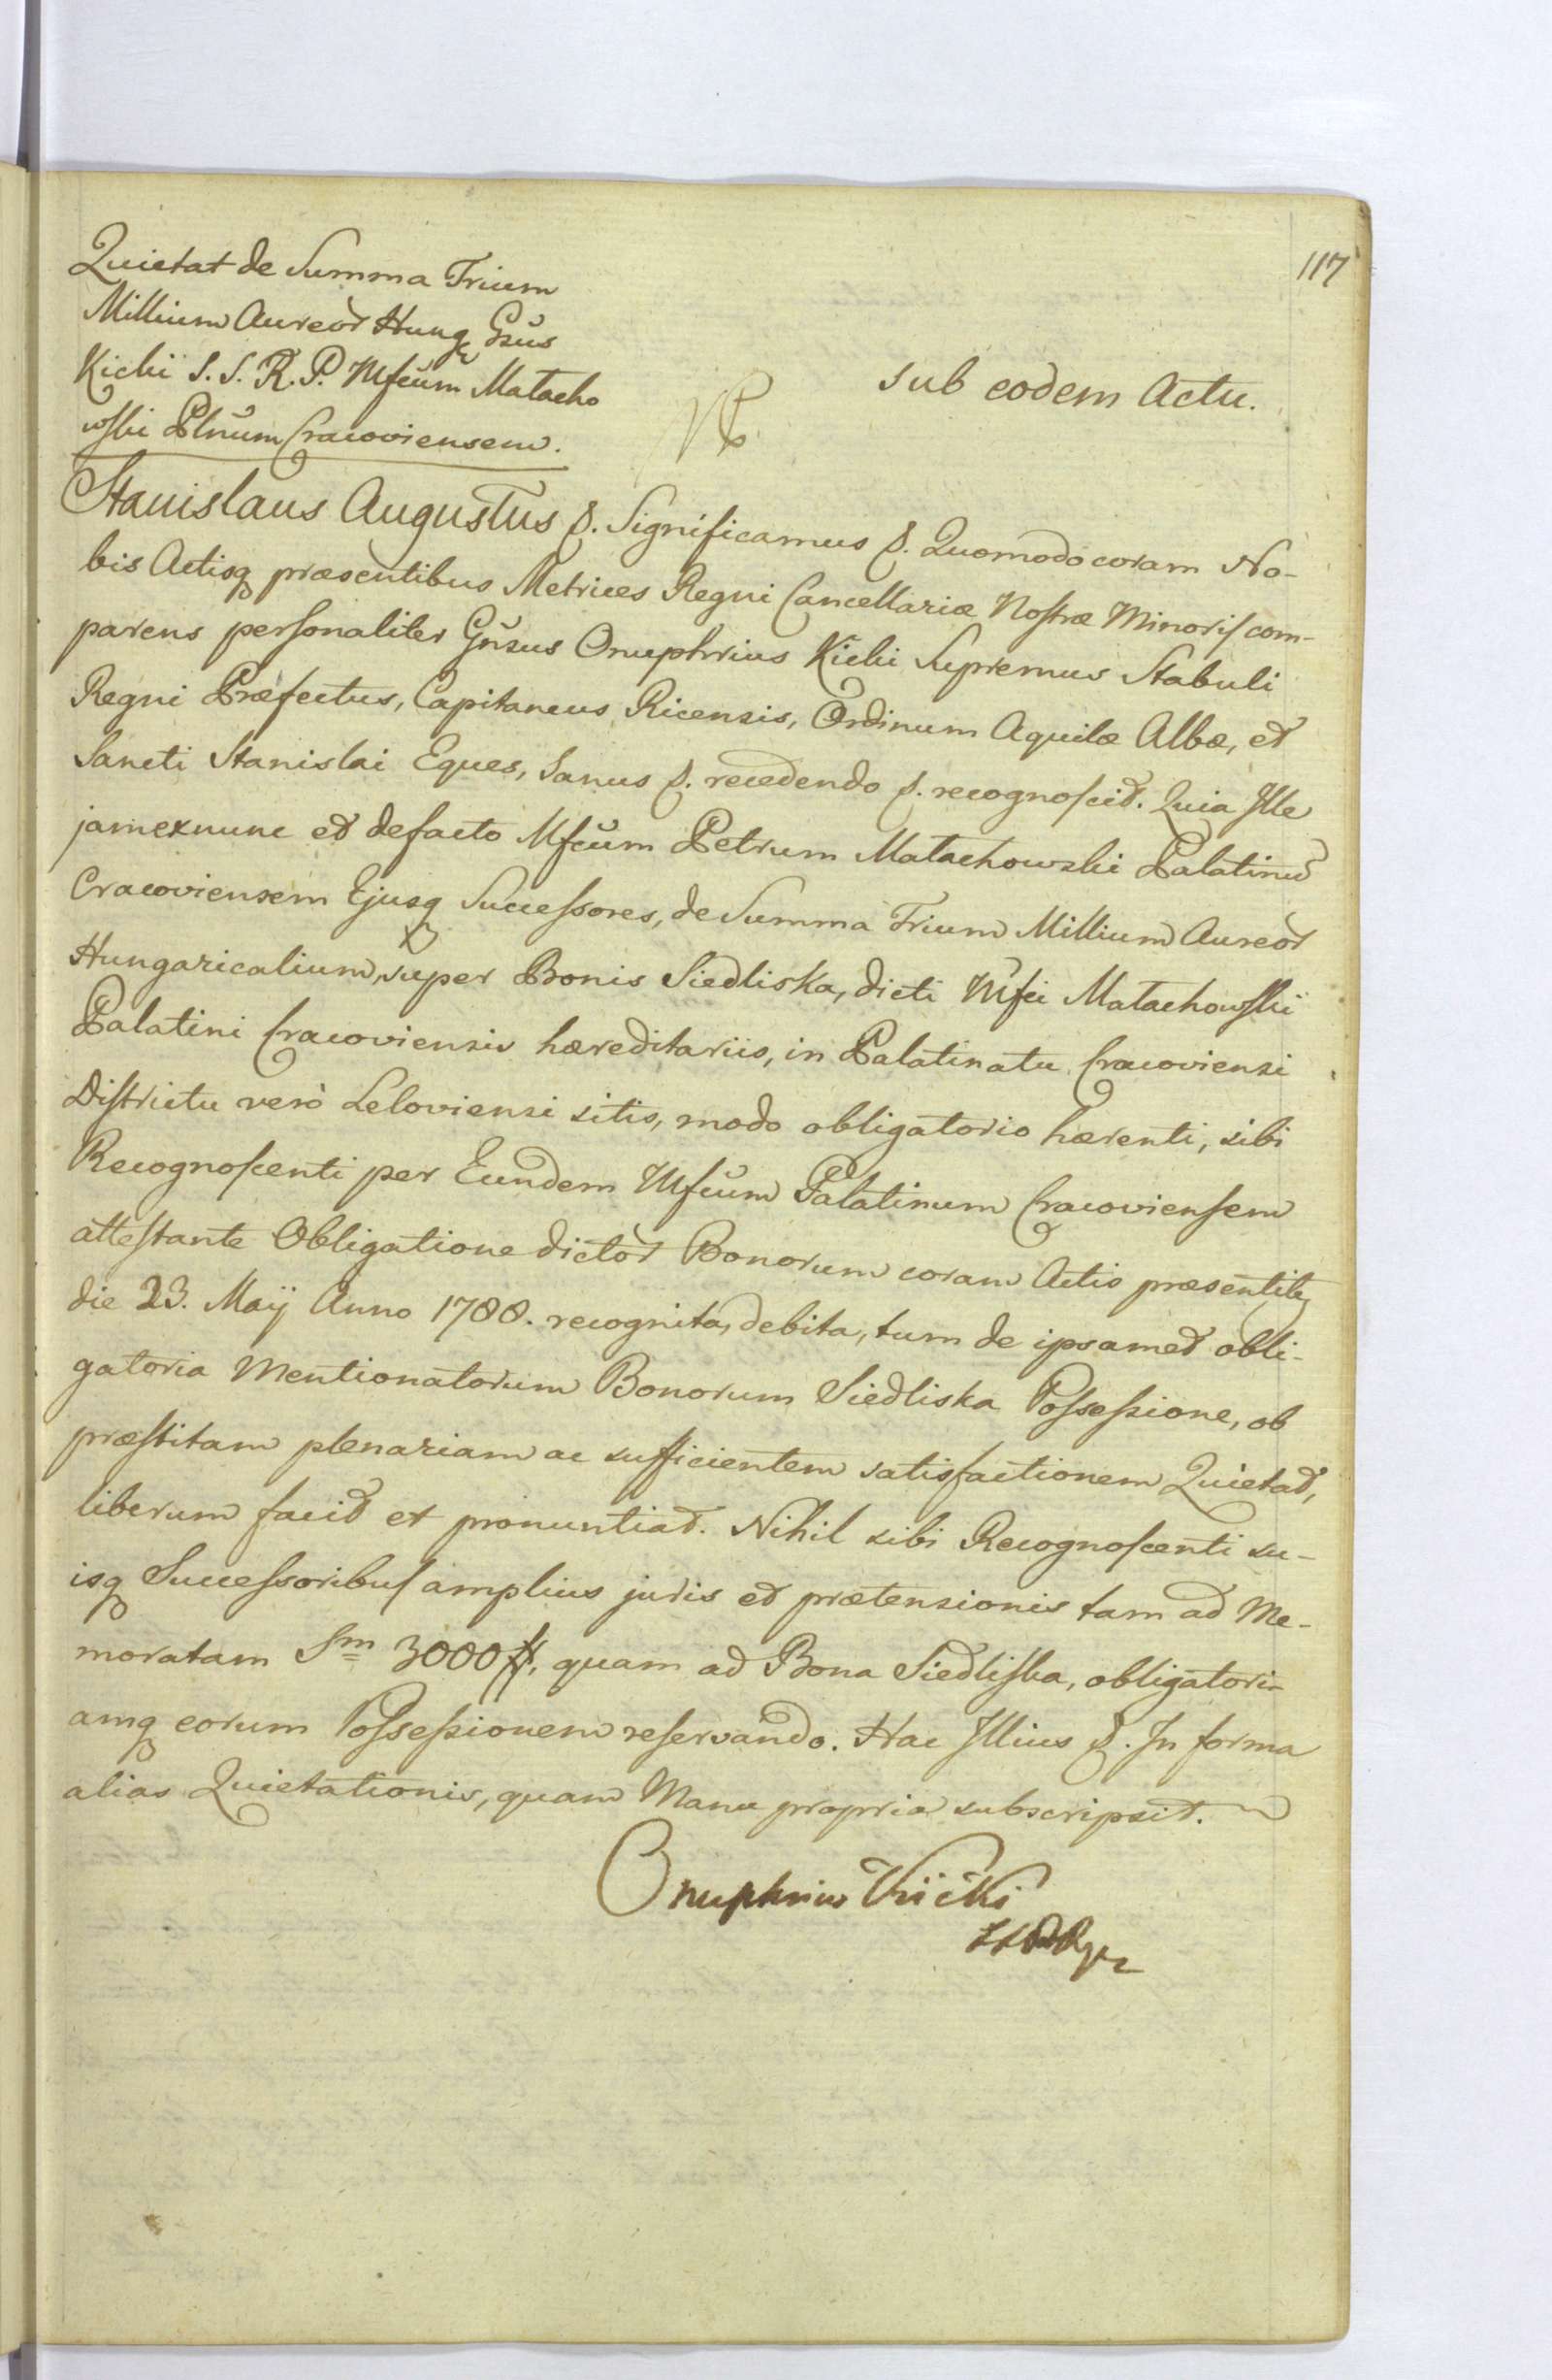 117
Quietat de Summa Trium
Millium Aureor̃ Hung Gñsus
Kicki S. S. R. P. Mfcum Małacho
wski Pltnum Cracoviensem.
sub eodem Actu.
Stanislaus Augustus &. Significamus &. Quomodo coram No-
bis Actisq præsentibus Metrices Regni Cancellariæ Nostræ Minoris com-
parens personaliter Gñsus Onuphrius Kicki Supremus Stabuli
Regni Præfectus, Capitaneus Ricensis, Ordinum Aquilæ Albæ, et
Sancti Stanislai Eques, Sanus &. recedendo &. recognoscit. Quia Ille
jam exnunc et defacto Mfcum Petrum Małachowski Palatinũ
Cracoviensem Ejusq Successores, de Summa Trium Millium Aureor̃
Hungaricalium, super Bonis Siedliska, dicti Mfci Małachowskii
Palatini Cracoviensis hæreditariis, in Palatinatu Cracoviensi
Districtu verò Leloviensi sitis, modo obligatorio hærenti, sibi
Recognoscenti per Eundem Mfcum Palatinum Cracoviensem
attestante Obligatione dictor̃ Bonorum coram Actis præsentibq
die 23. Maij Anno 1788. recognita, debita, tum de ipsamet obli-
gatoria Mentionatorum Bonorum Siedliska Possessione, ob
præstitam plenariam ac sufficientem satisfactionem Quietat,
liberum facit et pronuntiat. Nihil sibi Recognoscenti su-
isq Successoribus amplius juris et prætensionis tam ad Me-
moratam Sm 3000 #, quam ad Bona Siedliska, obligatori-
amq eorum Possessionem reservando. Hac Illius &. In forma
alias Quietationis, quam Manu propria subscripsit.
Onuphrius Kicki